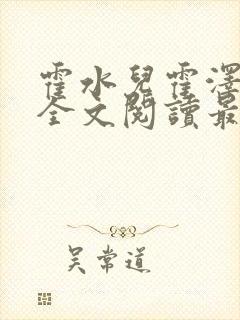 霍水兒霍澤
全文閱讀最
吴常道